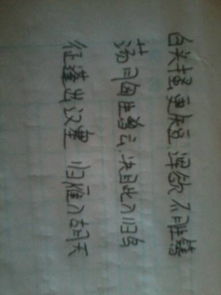 白头搔更短 浑欲不胜簪
荡胸生曾云 决眦入归鸟
征蓬出汉塞 归雁入胡天